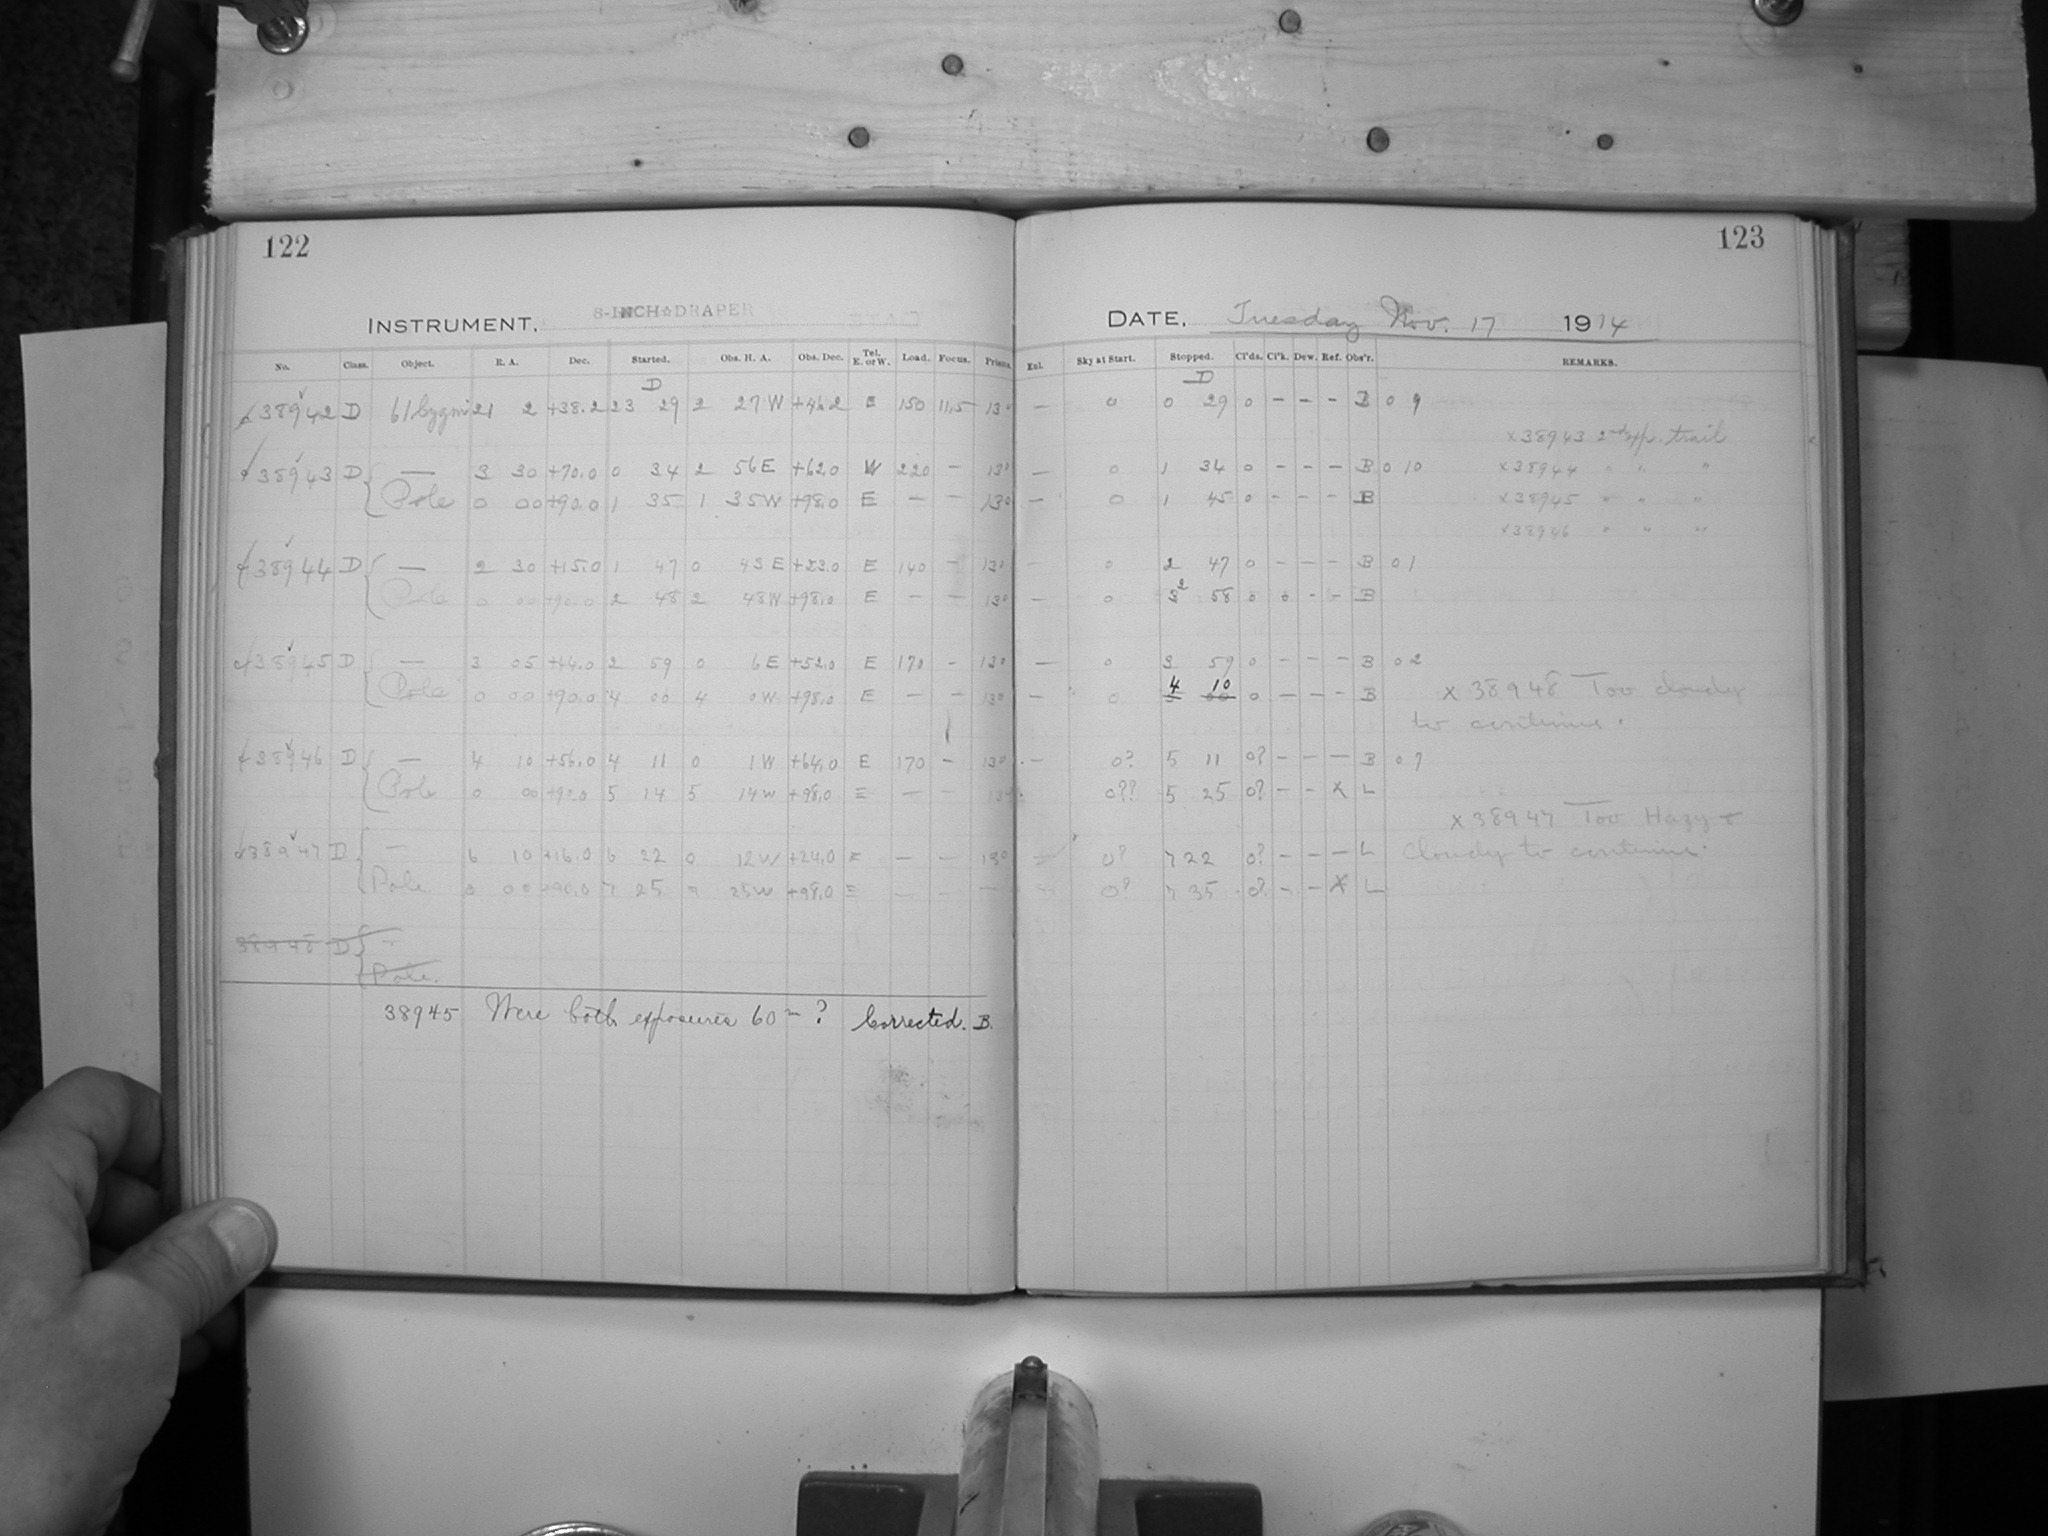 122
INSTRUMENT, 8-INCH DRAPER
No. Class. Object. R. A. Dec. Started. Obs. H. A. Obs. Dec. Tel. E. or W. Load. Focus. Prisms.
D
38942 D 61 Cygni 21 2 +38.2 23 29 2 27 W +46.2 E 150 11.5 13°
38943 D — 3 30 +70.0 0 34 2 56 E +62.0 W 220 - 13°
Pole 0 00 +90.0 1 35 1 35 W +98.0 E — — 13°
38944 D — 2 30 +15.0 1 47 0 43 E +23.0 E 140 - 13°
Pole 0 00 +90.0 2 48 2 48 W +98.0 E — — 13°
38945 D — 3 05 +44.0 2 59 0 6 E +52.0 E 170 - 13°
Pole 0 00 +90.0 4 00 4 0 W +98.0 E — — 13°
38946 D — 4 10 +56.0 4 11 0 1 W +64.0 E 170 - 13°
Pole 0 00 +90.0 5 14 5 14 W +98.0 E — — 13°
38947 D — 6 10 +16.0 6 22 0 12 W +24.0 E — — 13°
Pole. 0 00 +90.0 7 25 7 25 W +98.0 E — — —
38948 D —
Pole.
38945 Were both exposures 60 m ? Corrected. B.
123
DATE, Tuesday Nov. 17 1914
Exl. Sky at Start. Stopped. Cl'ds. Cl'k. Dew. Ref. Obs'r. REMARKS.
D
— 0 0 29 0 - - - B 0 9
x 38943 2nd exp. trail
— 0 1 34 0 - - - B 0 10 x 38944 " " "
— 0 1 45 0 - - - B x 38945 " " "
x 38946 " " "
- 0 2 47 0 - - - B 0 1
— 0 3 2 58 0 0 - - B
— 0 3 59 0 - - - B 0 2
4 10
— 0 5 00 0 - - - B x 38948 Too cloudy
to continue.
— 0? 5 11 0? - - - B 0 7
0?? 5 25 0? - - X L
x 38947 Too Hazy &
— 0? 7 22 0? - - - L Cloudy to continue.
0? 7 35 0? - - X L